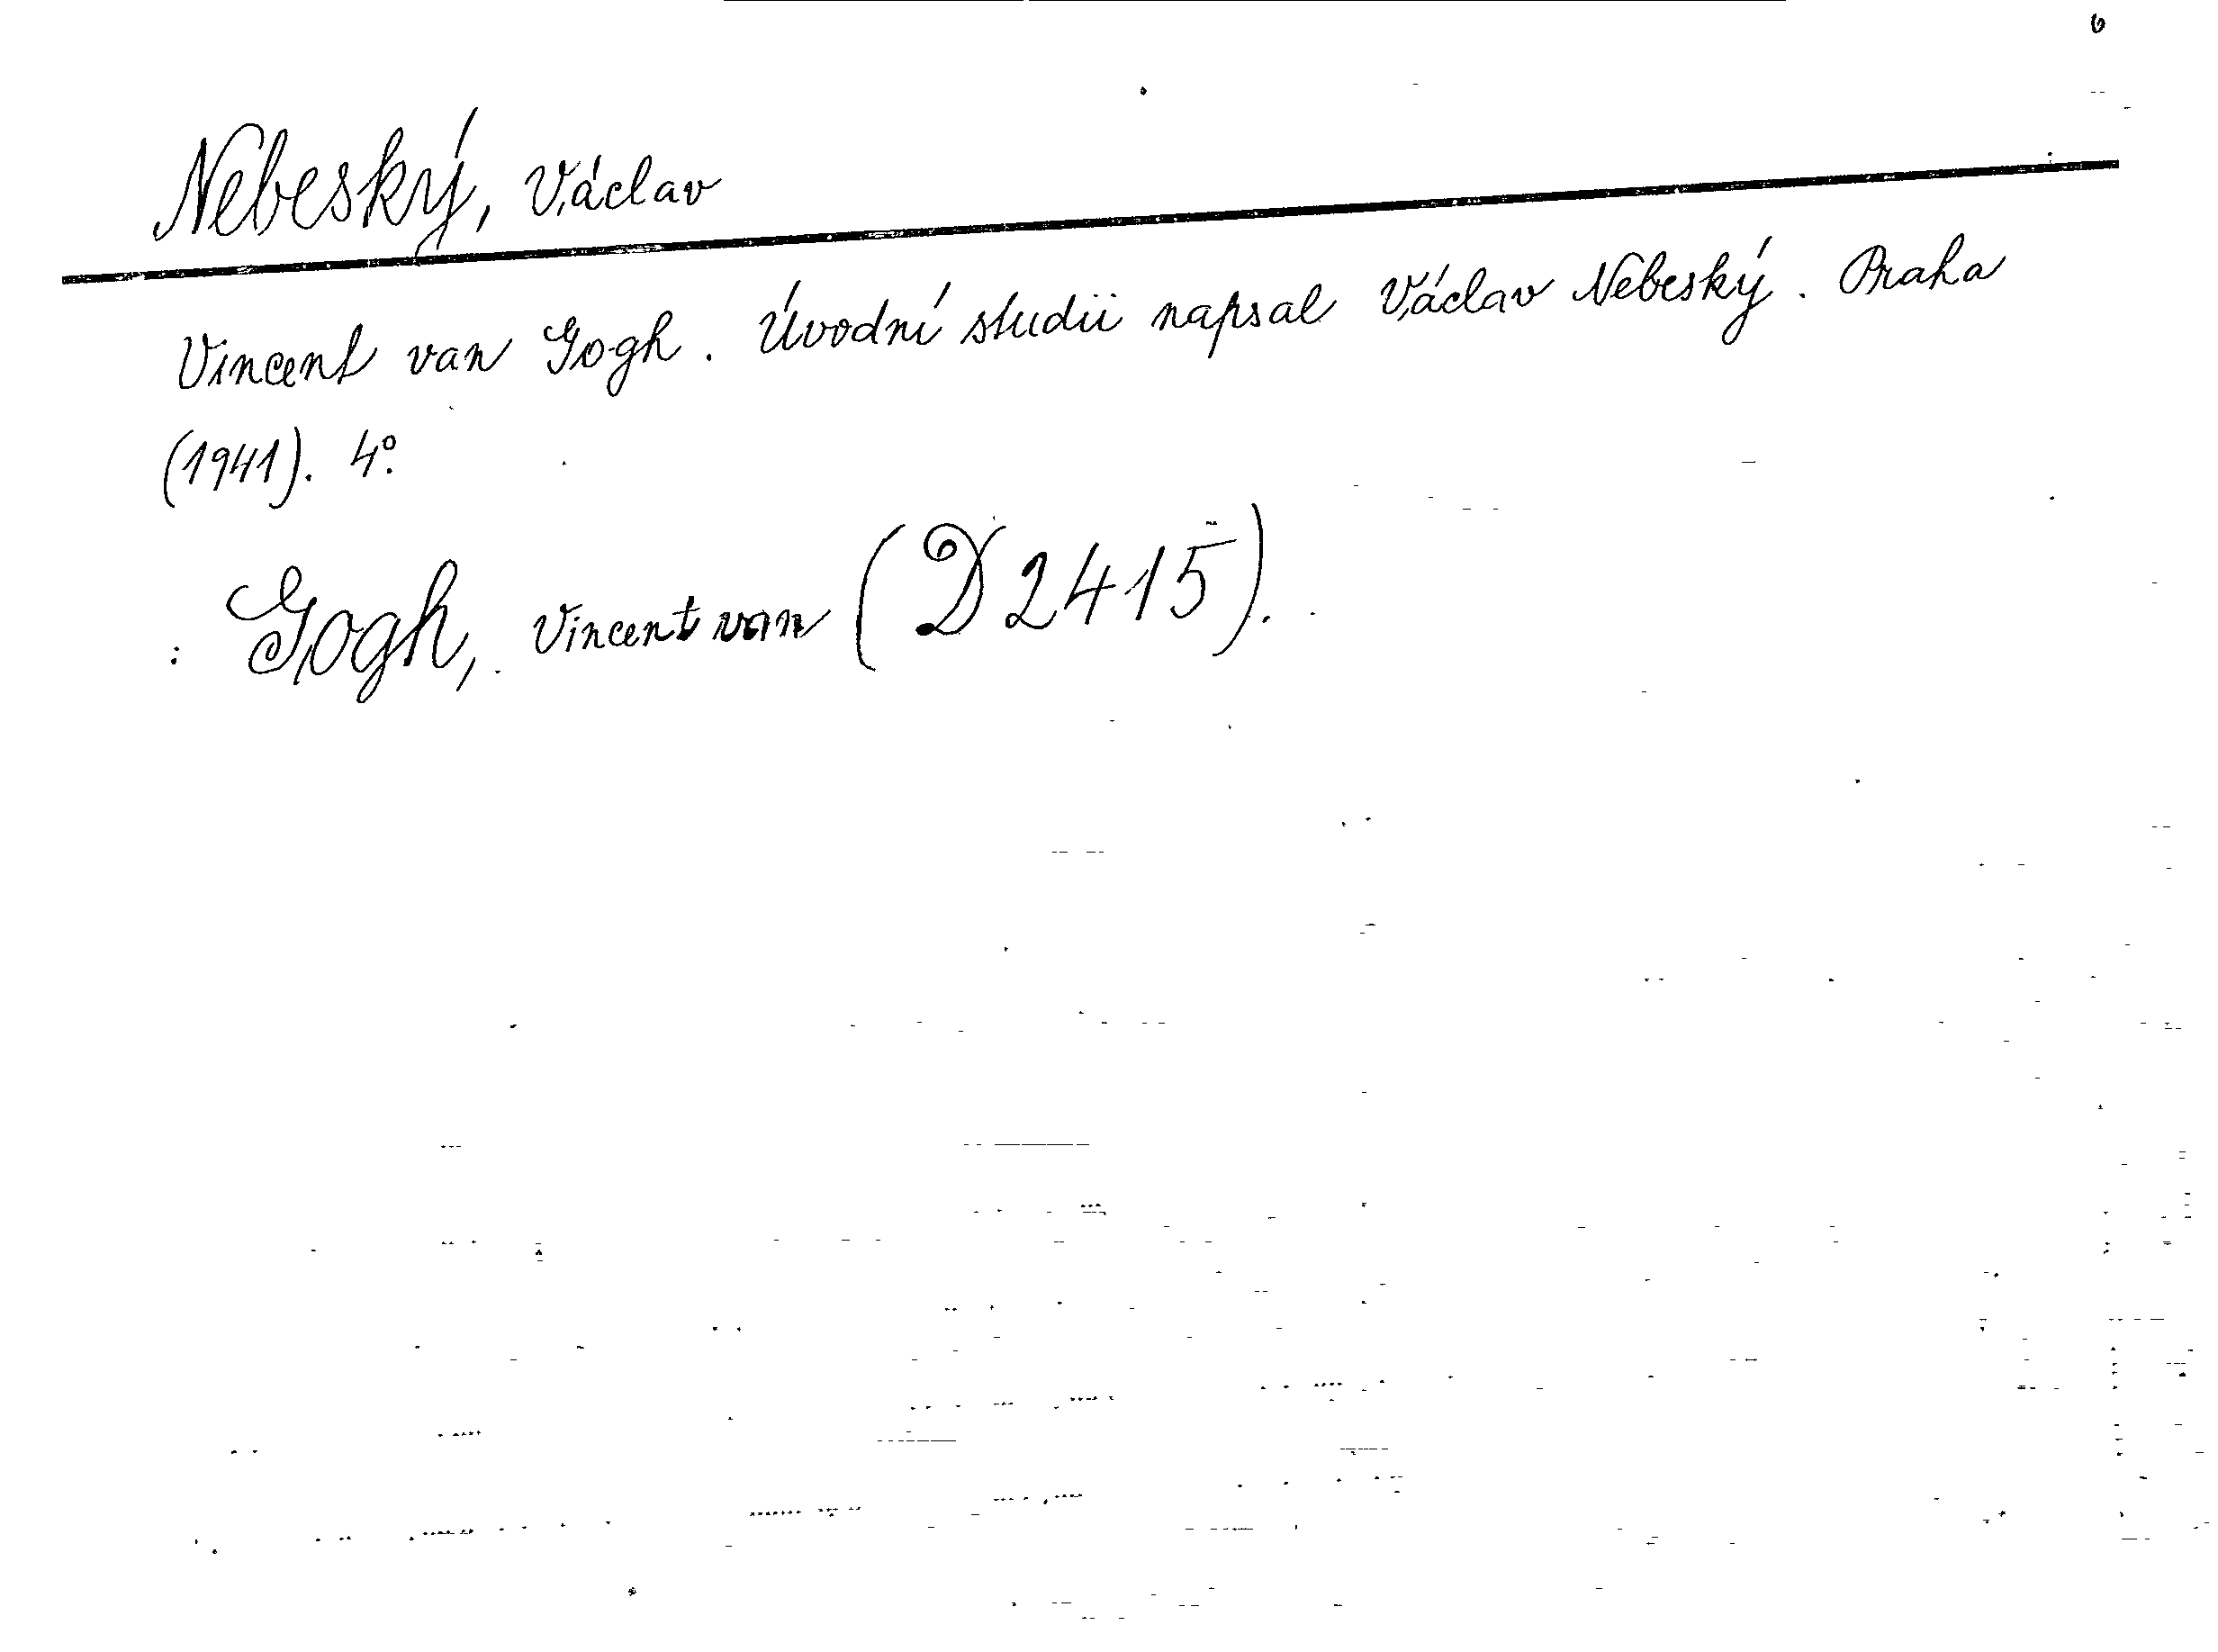 Nebeský, Václav
Vincent van Gogh. Úvodní studii napsal Václav Nebeský. Praha
(1941). 4°.
: Gogh, Vincent van (D 2415).